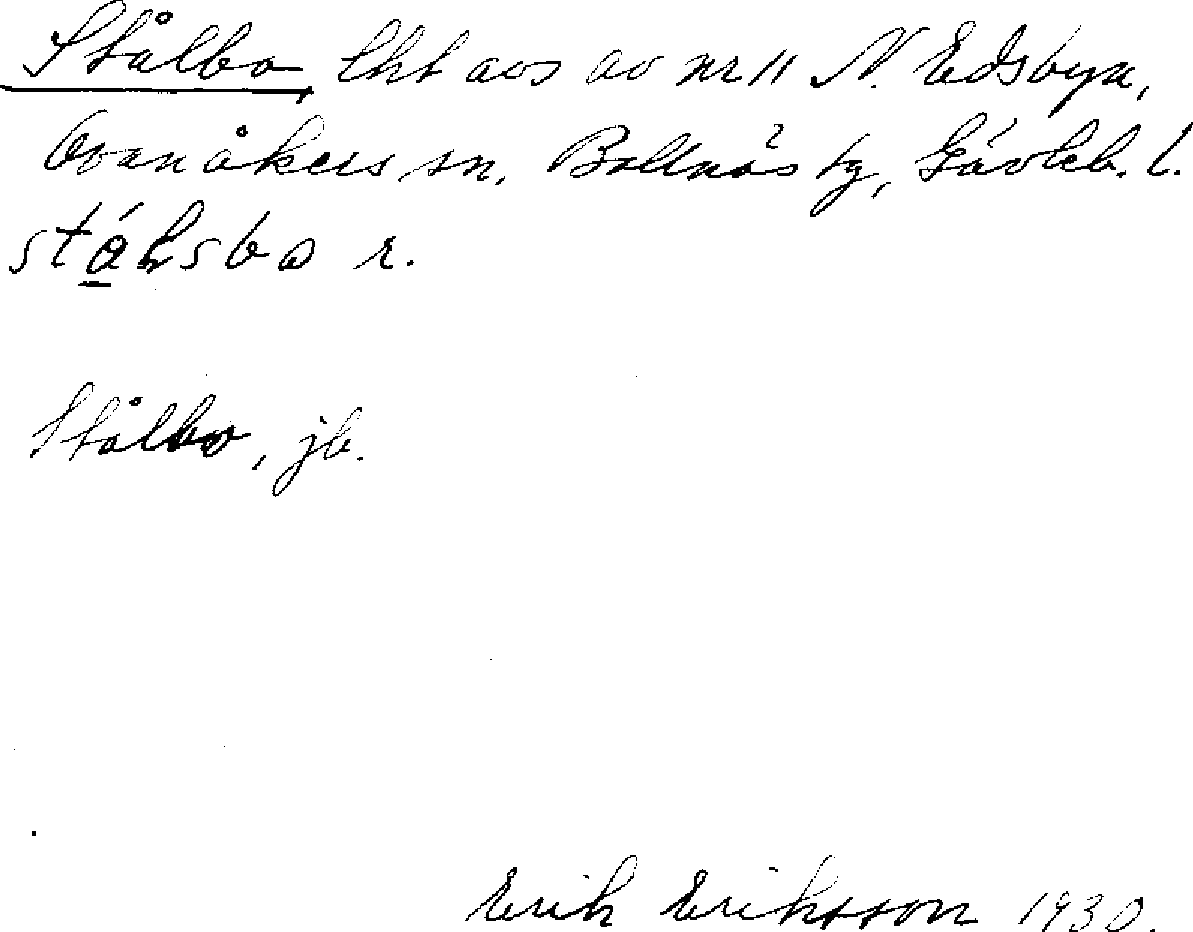 Stålbo, lht avs av nr 11 N. Edsbyn,
Ovanåkers sn. Bollnäs tg, Gävleb. l.
stálsbo r.
Stålbo, jb.
Erik Eriksson 1930.